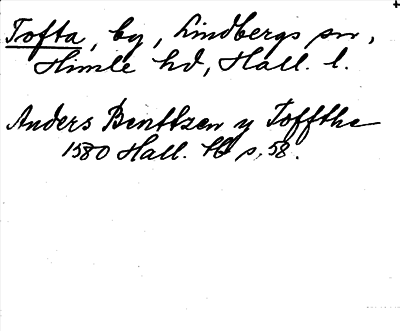 Tofta, by, Lindbergs sn,
Himle hd, Hall. l.
Anders Benttzen y Toffthe
1580 Hall. Hb s. 58.